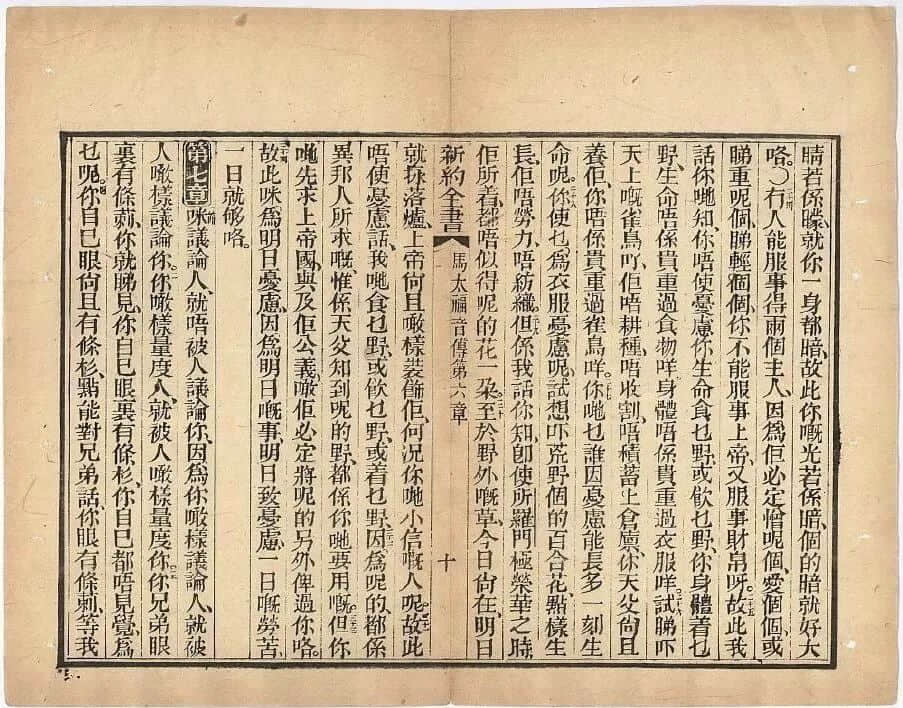 睛若係矇、就你一身都暗、故此你嘅光若係暗、個的暗就好大
咯。〇冇人能服事得兩個主人、因爲佢必定憎呢個、愛個個、或
睇重呢個、睇輕個個、你不能服事上帝、又服事財帛呀。故此我
話你哋知、你唔使憂慮你生命食乜野、或飲乜野、你身體着乜
野、生命唔係貴重過食物咩、身體唔係貴重過衣服咩、試睇吓
天上嘅雀鳥吖、佢唔耕種、唔收割、唔積蓄上倉廩、你天父尙且
養佢、你唔係貴重過雀鳥咩。你哋乜誰因憂慮能長多一刻生
命呢。你使乜爲衣服憂慮呢、試想吓荒野個的百合花、點樣生
長、佢唔勞力、唔紡織、但係我話你知、卽使所羅門極榮華之時、
佢所着都唔似得呢的花一朶。至於野外嘅草、今日尙在、明日
新約全書 馬太福音傳第六章 十
就掭落爐、上帝尙且噉樣裝飾佢、何況你哋小信嘅人呢。故此
唔使憂慮話、我哋食乜野、或飲乜野、或着乜野、因爲呢的、都係
異邦人所求嘅、惟係天父知到呢的野、都係你哋要用嘅。但你
哋先求上帝國、與及佢公義、噉佢必定將呢的另外俾過你咯。
故此咪爲明日憂慮、因爲明日嘅事、明日致憂慮、一日嘅勞苦、
一日就够咯。
第七章咪議論人、就唔被人議論你、因爲你噉樣議論人、就被
人噉樣議論你。你噉樣量度人、就被人噉樣量度你、你兄弟眼
裏有條莿、你就睇見、你自己眼裏有條杉、你自己都唔見覺、爲
乜呢。你自己眼尙且有條杉、點能對兄弟話、你眼有條莿、等我